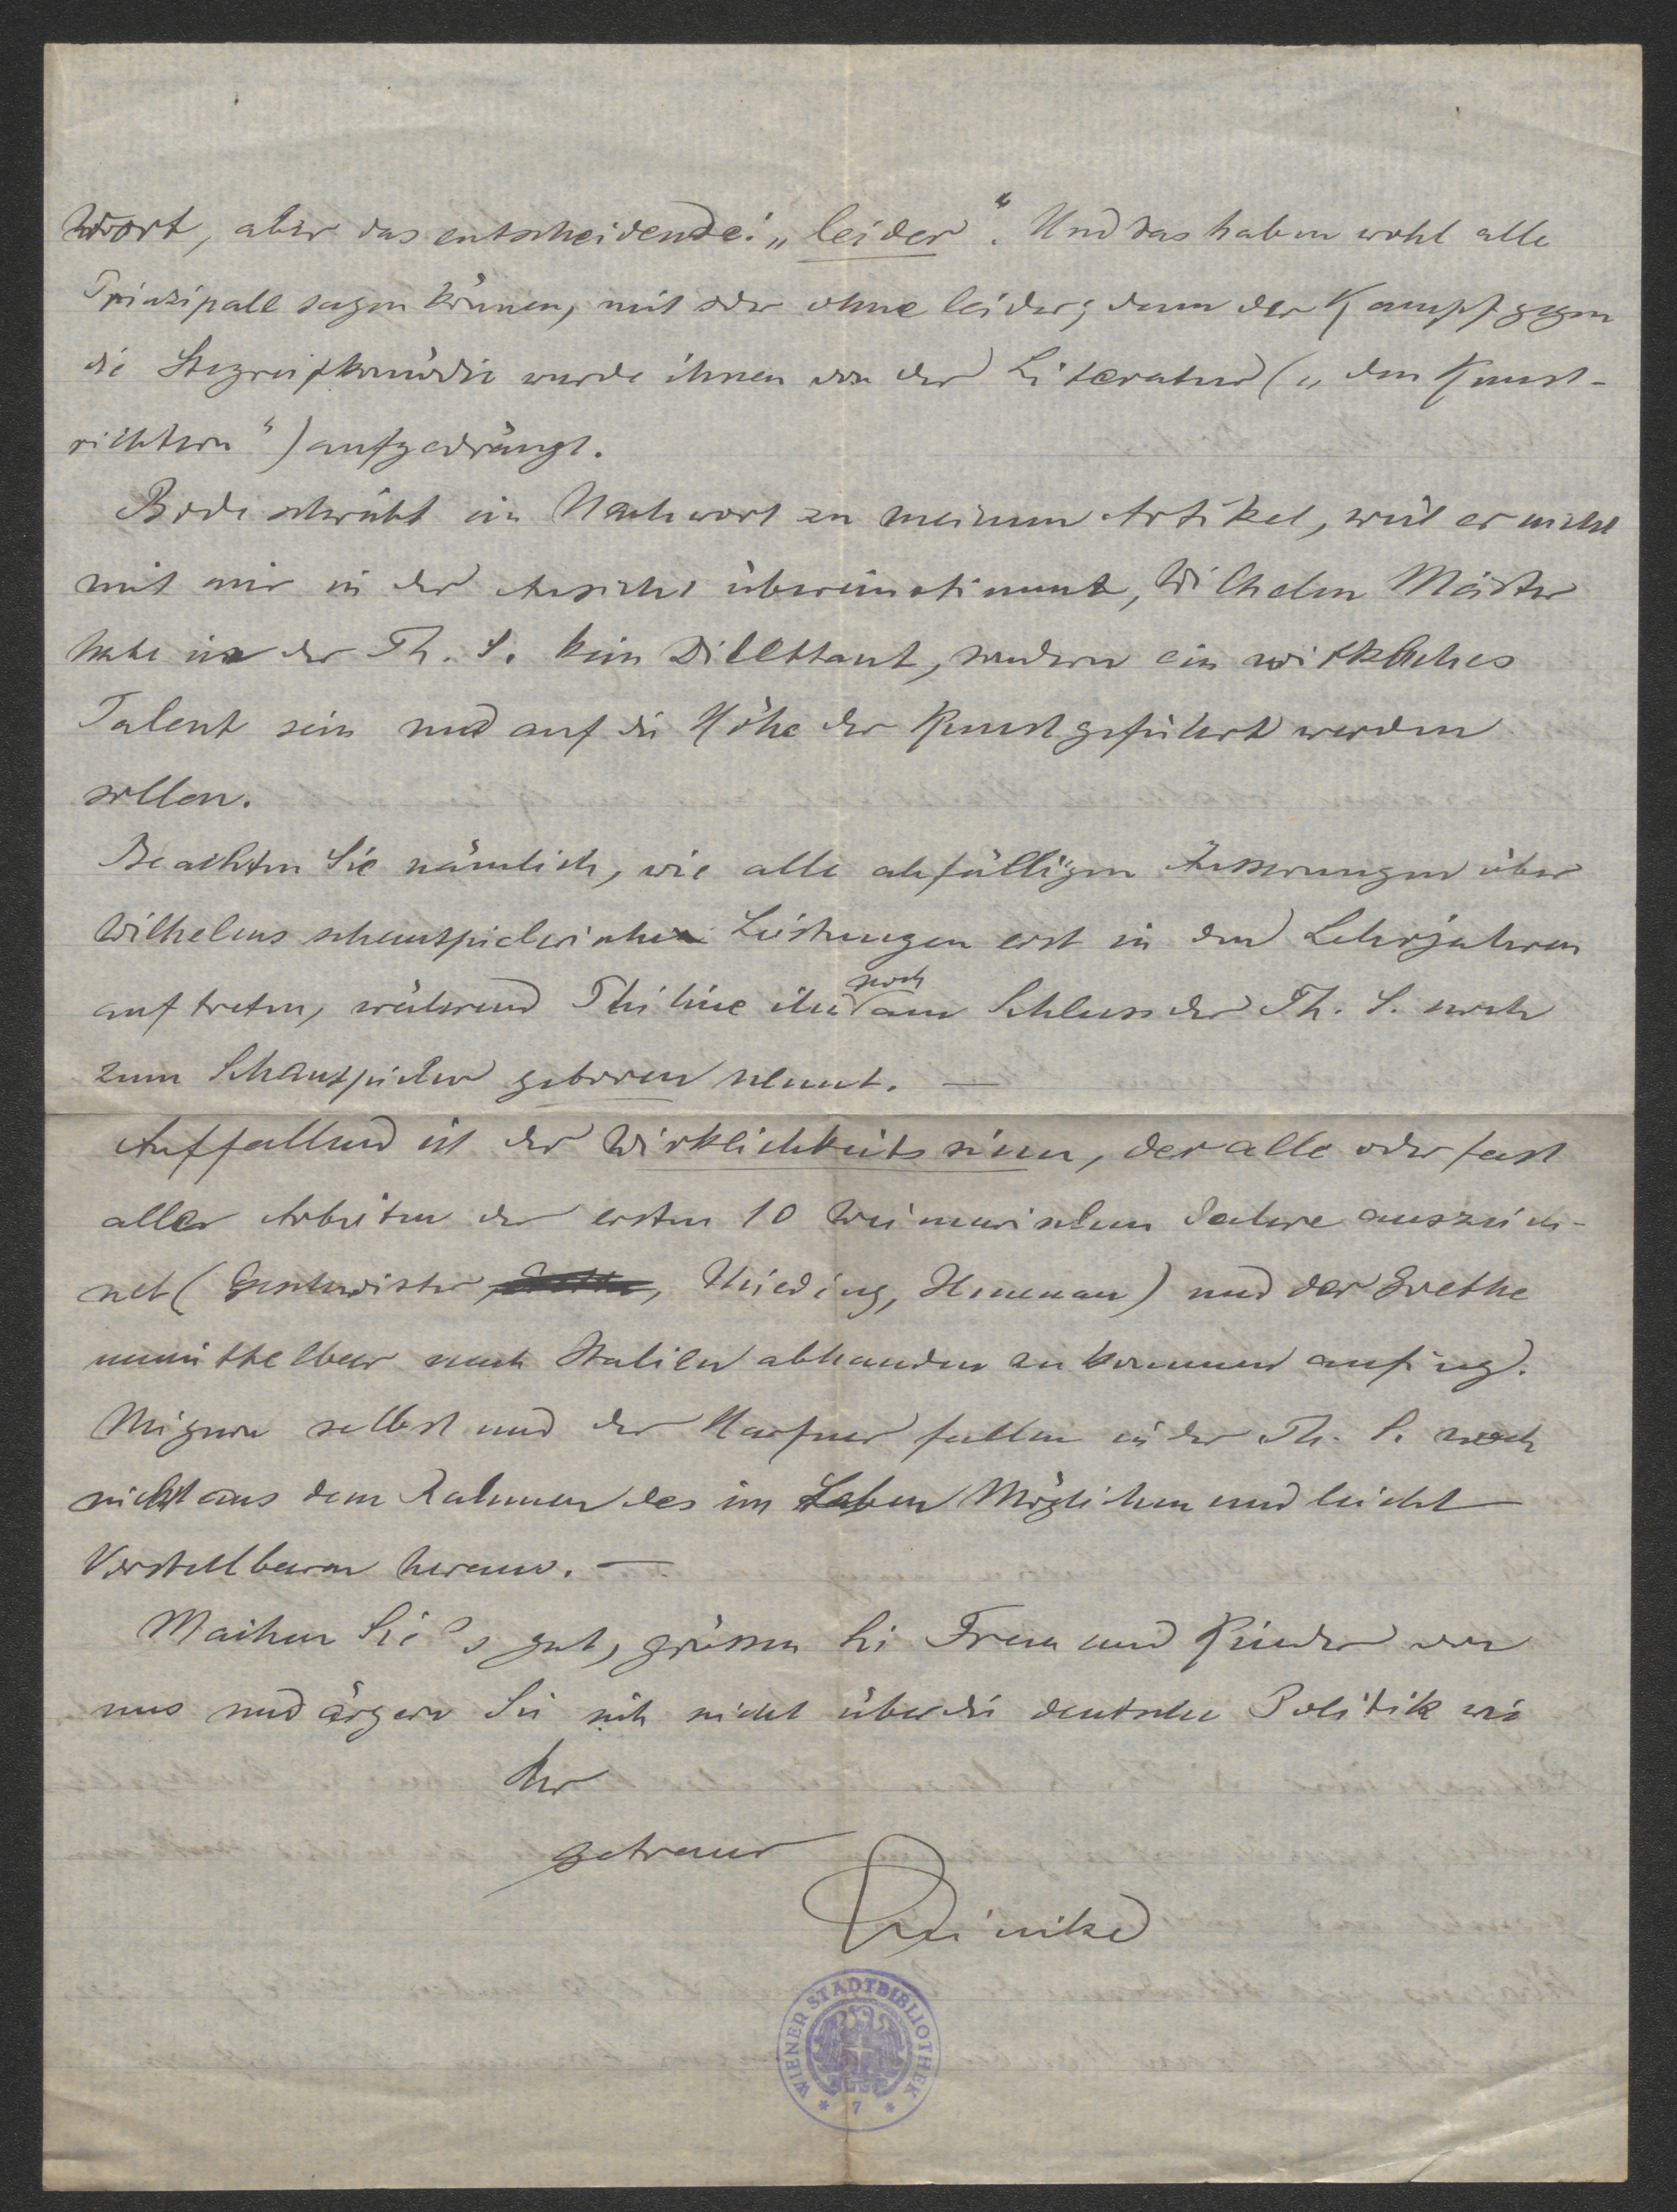 Wort, aber das entscheidende: „leider“. Und das haben wohl alle
Prinzipale sagen können, mit oder ohne leider; denn der Kampf gegen
die Stegreifkomödie wurde ihnen von der Literatur („den Kunst-
richtern“) aufgedrängt.
Bode schreibt ein Nachwort zu meinem Artikel, weil er nicht
mit mir in der Ansicht übereinstimmt, Wilhelm Meister
habe in der Th. S. kein Dilettant, sondern ein wirkliches
Talent sein und auf die Höhe der Kunst geführt werden
sollen.
Beachten Sie nämlich, wie alle abfälligen Äusserungen über
Wilhelms schauspielerische Leistungen erst in den Lehrjahren
auftreten, während Philine ihn noch am Schluss der Th. S. noch
zum Schauspieler geboren nennt. —
Auffallend ist der Wirklichkeitssinn, der alle oder fast
alle Arbeiten der ersten 10 Weimarischen Jahre auszeich-
net (Geschwister, Mieding, Ilmenau) und der Goethe
unmittelbar nach Italien abhanden zu kommen anfing.
Mignon selbst und der Harfner fallen in der Th. S. noch
nicht aus dem Rahmen des im Leben Möglichen und leicht
Vorstellbaren heraus. —
Machen Sie's gut, grüssen Sie Frau und Kinder von
uns und ärgern Sie sich nicht über die deutsche Politik wie
Ihr
getreuer
WIENER STADTBIBLIOTHEK
* 7 *